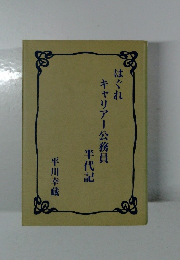 はぐれ
キャリアー公務員
半代記
平川幸蔵